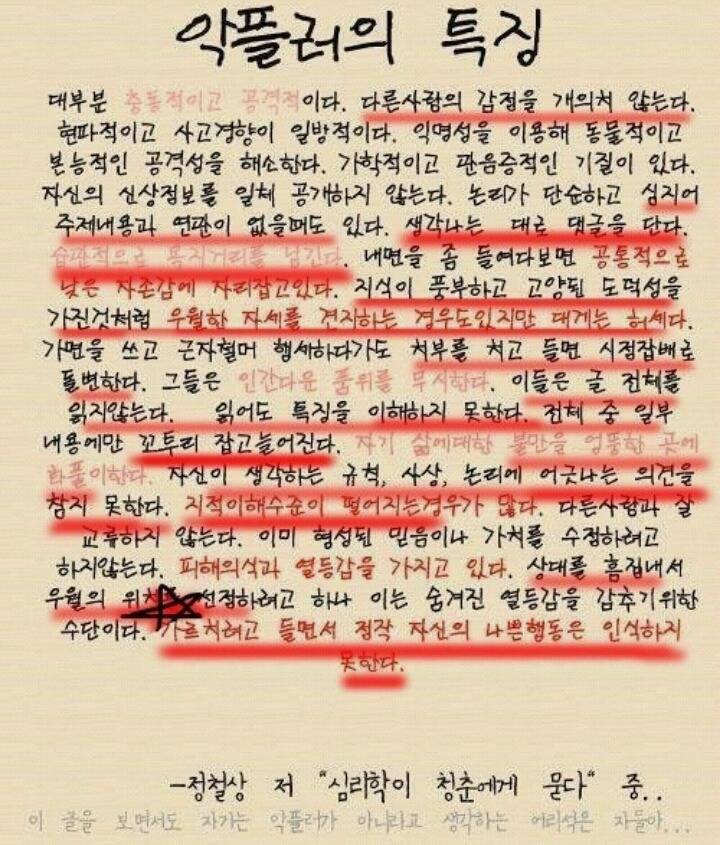 악플러의 특징
대부분 충동적이고 공격적이다. 다른사람의 감정을 개의치 않는다.
현파적이고 사고경향이 일방적이다. 익명성을 이용해 동물적이고
본능적인 공격성을 해소한다. 가학적이고 판음증적인 기질이 있다.
자신의 신상정보를 일체 공개하지 않는다. 논리가 단순하고 심지어
주제내용과 연판이 없을때도 있다. 생각나는 대로 댓글을 단다.
습관적으로 욕지거리를 남긴다. 내면을 좀 들여다보면 공통적으로
낮은 자존감에 자리잡고있다. 지식이 풍부하고 고양된 도덕성을
가진것처럼 우월한 자세를 견지하는 경우도있지만 대게는 허세다.
가면을 쓰고 근자혈머 행세하다가도 치부를 치고 들면 시정잡배로
돌변한다. 그들은 인간다운 품위를 무시한다. 이들은 글 전체를
읽지않는다. 읽어도 특징을 이해하지 못한다. 전체 중 일부
내용에만 꼬투리 잡고늘어진다. 자기 삶에대한 불만을 엉뚱한 곳에
화풀이한다. 자신이 생각하는 규칙, 사상, 논리에 어긋나는 의견을
참지 못한다. 지적이해수준이 떨어지는경우가 많다. 다른사람과 잘
교류하지 않는다. 이미 형성된 믿음이나 가치를 수정하려고
하지않는다. 피해의식과 열등감을 가지고 있다. 상대를 흠집내서
우월의 선점하려고 하나 이는 숨겨진 열등감을 감추기위한
수단이다. 가르치려고 들면서 정작 자신의 나쁜행동은 인식하지
못한다.
-정철상 저 "심리학이 청춘에게 묻다" 중..
이 글을 보면서도 자기는 악플러가 아니라고 생각하는 어리석은 자들아...